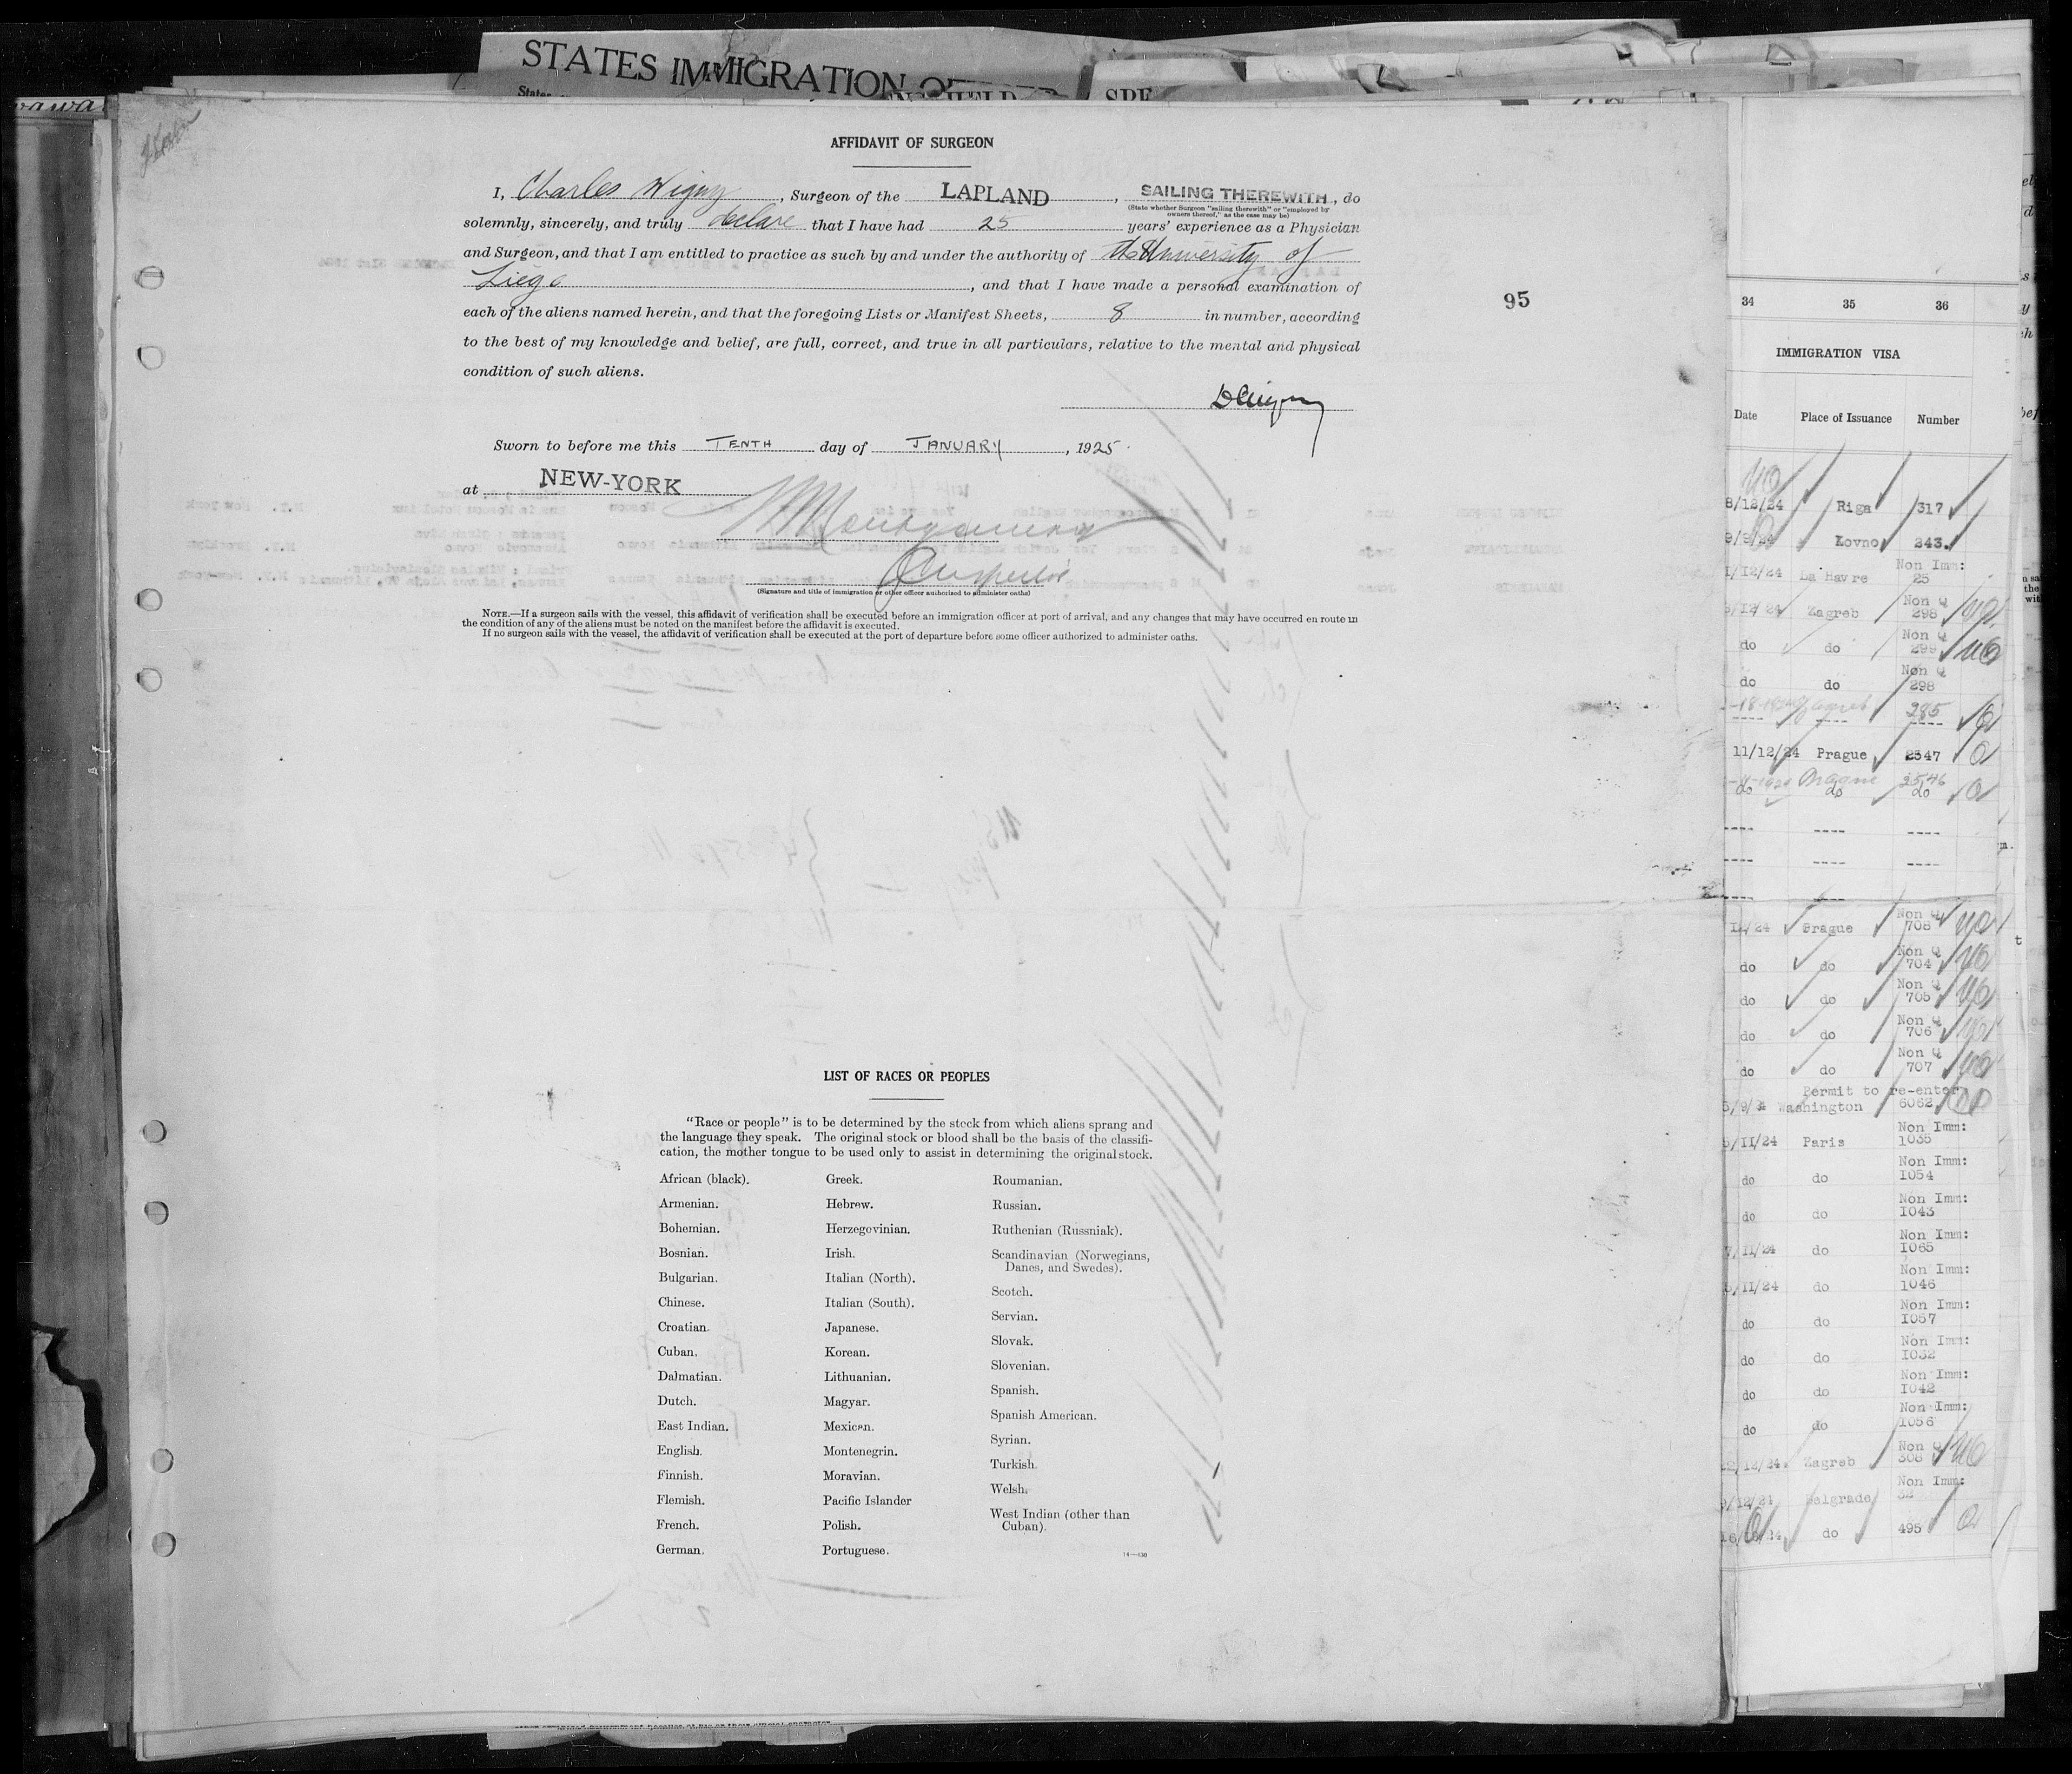 STATES IMMIGRATION
States
SPE
AFFIDAVIT OF SURGEON
I, Charles Wigny, Surgeon of the LAPLAND, SAILING THEREWITH, do
(State whether Surgeon "sailing therewith" or "employed by
owners thereof," as the case may be)
solemnly, sincerely, and truly declare that I have had 25 years' experience as a Physician
and Surgeon, and that I am entitled to practice as such by and under the authority of the University of
Liege, and that I have made a personal examination of
each of the aliens named herein, and that the foregoing Lists or Manifest Sheets, 8 in number, according
to the best of my knowledge and belief, are full, correct, and true in all particulars, relative to the mental and physical
condition of such aliens.
95
Sworn to before me this TENTH day of JANUARY, 1925.
at NEW-YORK
Montgomery
Inspector
(Signature and title of immigration or other officer authorized to administer oaths)
NOTE.—If a surgeon sails with the vessel, this affidavit of verification shall be executed before an immigration officer at port of arrival, and any changes that may have occurred en route in
the condition of any of the aliens must be noted on the manifest before the affidavit is executed.
If no surgeon sails with the vessel, the affidavit of verification shall be executed at the port of departure before some officer authorized to administer oaths.
LIST OF RACES OR PEOPLES
"Race or people" is to be determined by the stock from which aliens sprang and
the language they speak. The original stock or blood shall be the basis of the classifi-
cation, the mother tongue to be used only to assist in determining the original stock.
African (black).
Armenian.
Bohemian.
Bosnian.
Bulgarian.
Chinese.
Croatian.
Cuban.
Dalmatian.
Dutch.
East Indian.
English.
Finnish.
Flemish.
French.
German.
Greek.
Hebrew.
Herzegovinian.
Irish.
Italian (North).
Italian (South).
Japanese.
Korean.
Lithuanian.
Magyar.
Mexican.
Montenegrin.
Moravian.
Pacific Islander
Polish.
Portuguese.
Roumanian.
Russian.
Ruthenian (Russniak).
Scandinavian (Norwegians,
Danes, and Swedes).
Scotch.
Servian.
Slovak.
Slovenian.
Spanish.
Spanish American.
Syrian.
Turkish.
Welsh.
West Indian (other than
Cuban).
14—430
34 35 36
IMMIGRATION VISA
Date Place of Issuance Number
8/12/24 Riga 317
9/9/24 Kovno 243.
Non Imm:
1/12/24 La Havre 25
Non Q
/12/24 Zagreb 298
Non Q
do do 299
Non Q
do do 298
Zagreb 285
---- ---- ----
11/12/24 Prague 2347
Prague 2546
do do do
---- ---- ----
---- ---- ----
---- ----
Non Q
12/24 Prague 708
Non Q
do do 704
Non Q
do do 705
Non Q
do do 706
Non Q
do do 707
Permit to re-enter
Washington 6062
Non Imm:
/II/24 Paris 1035
Non Imm:
do do I054
Non Imm:
do do I043
Non Imm:
/II/24 do I065
Non Imm:
/II/24 do 1046
Non Imm:
do do I057
Non Imm:
do do I032
Non Imm:
do do I042
Non Imm:
do do I056
Non Q
/12/24. Zagreb 308
Non Imm:
Belgrade 32
do 495